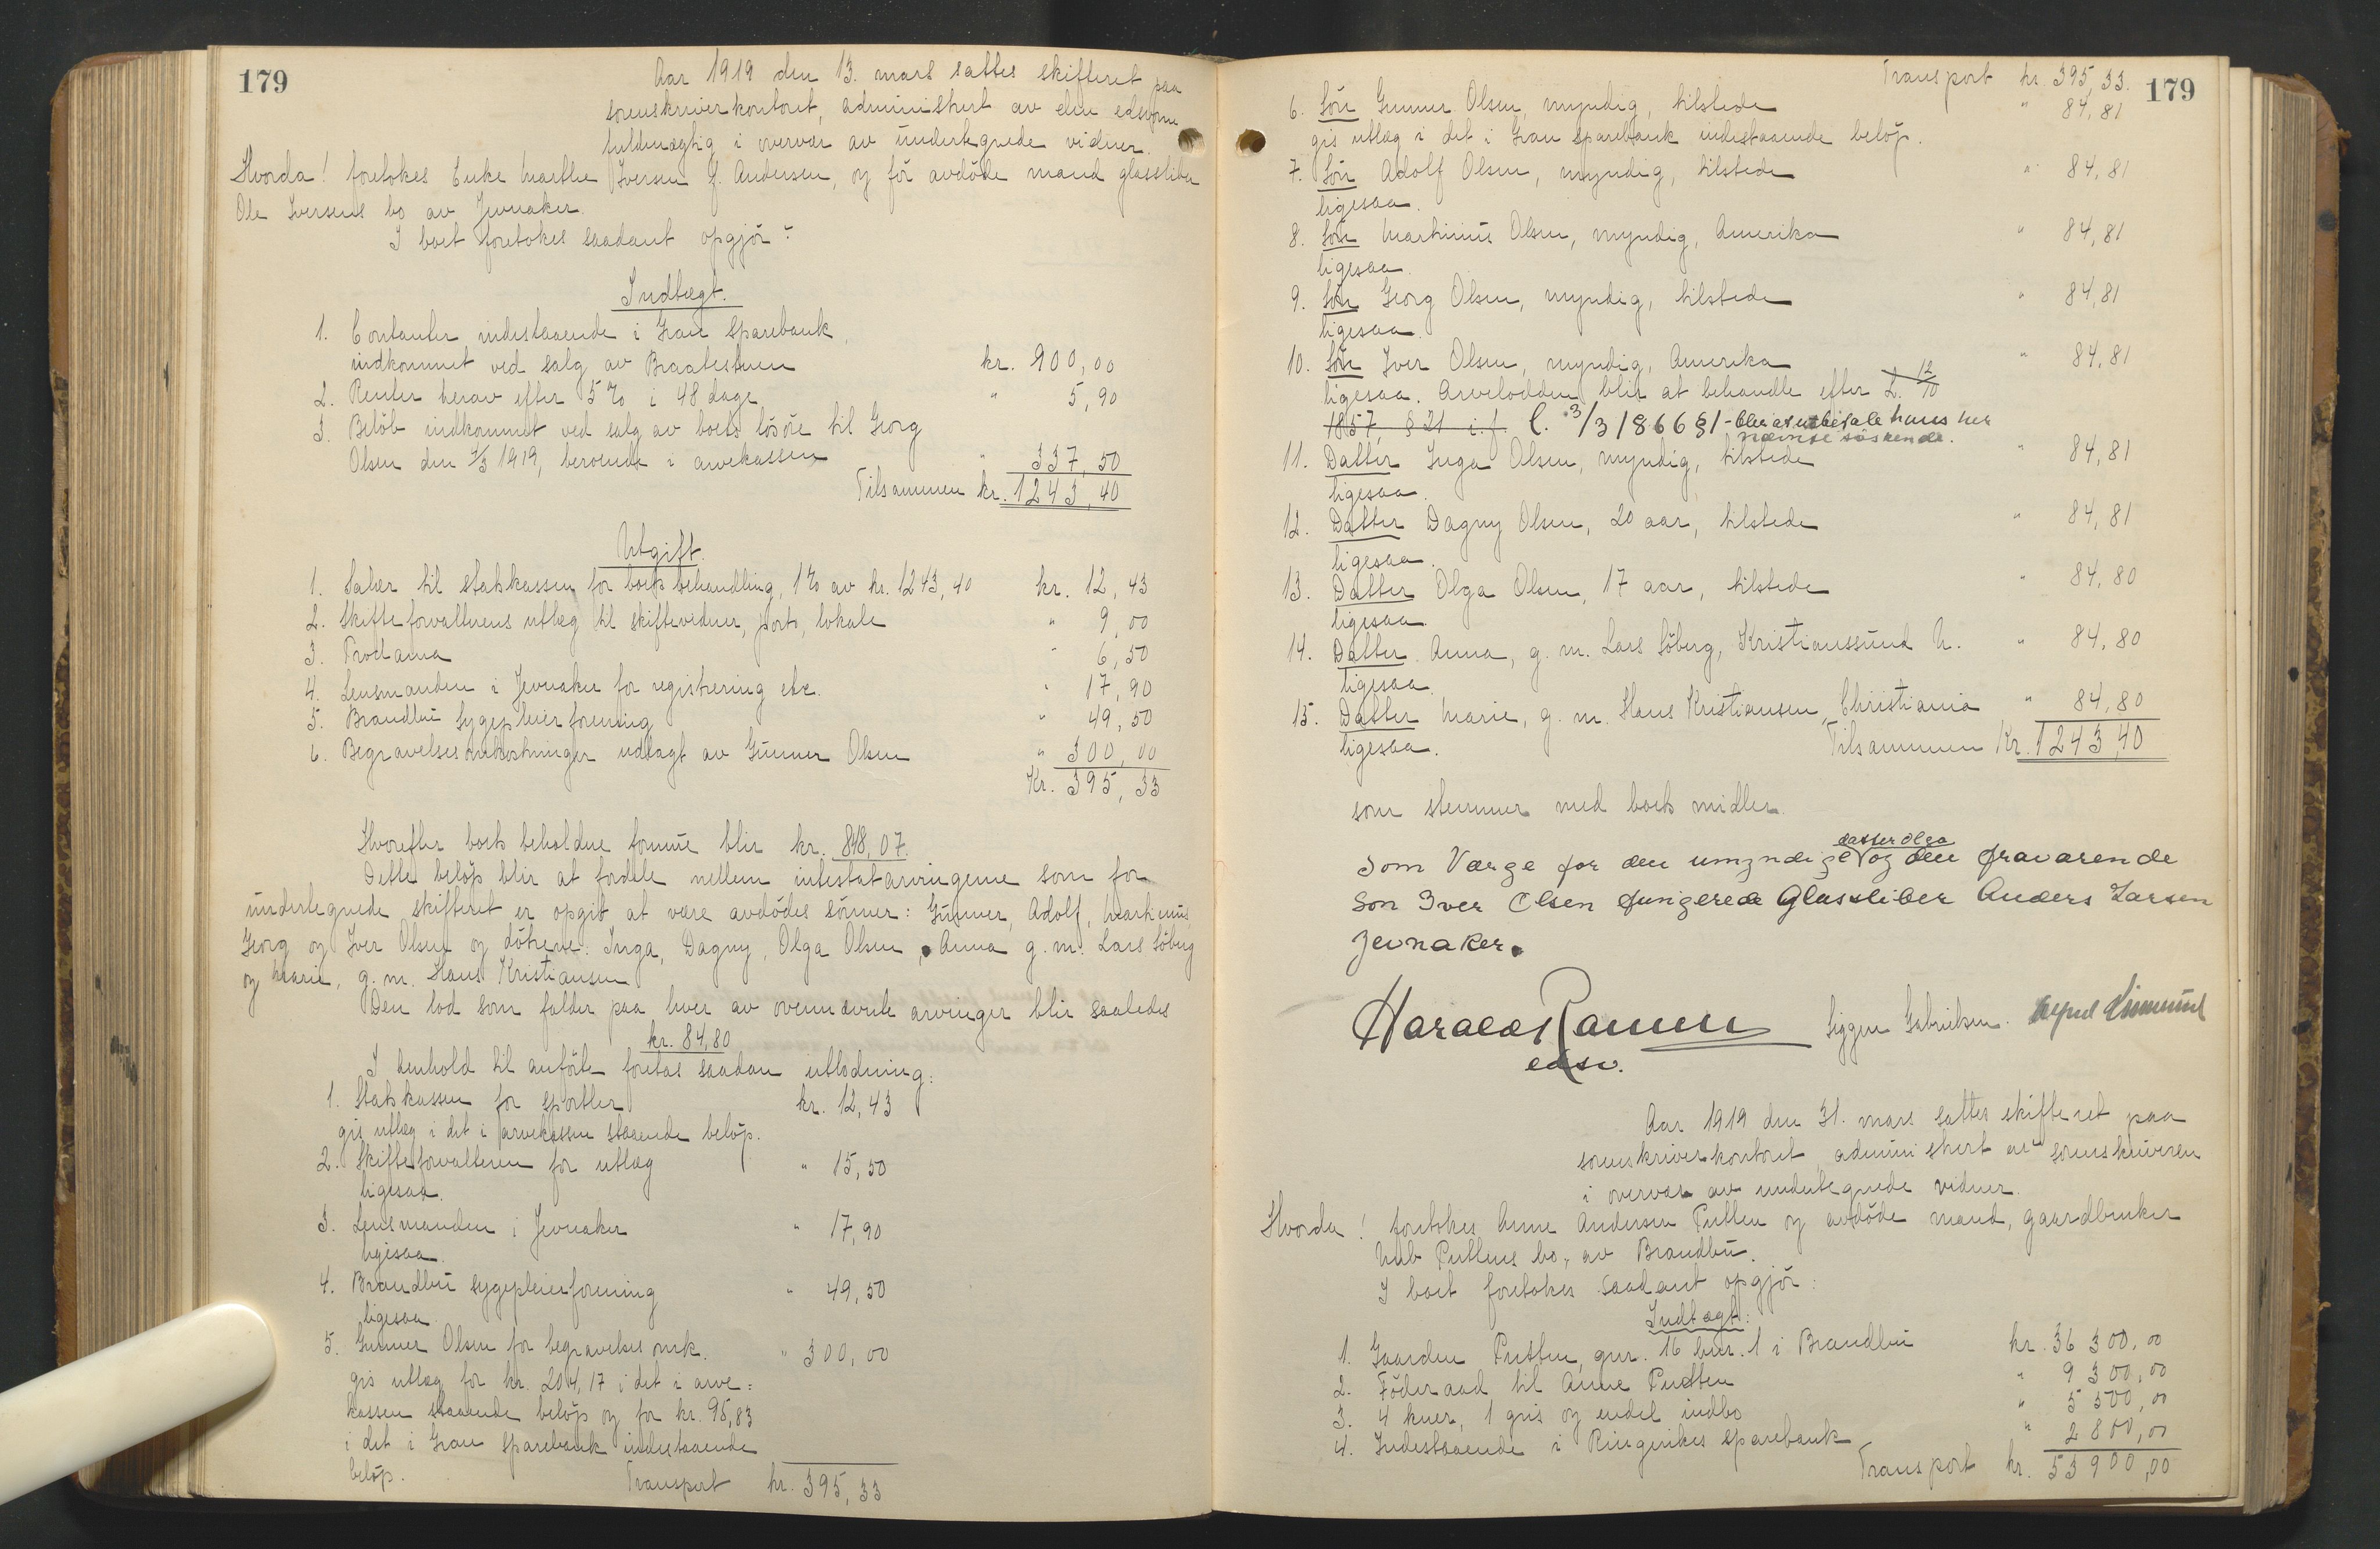 179
Aar 1919 den 13. mars sattes skifteret paa
sorenskriverkontoret, administrert av den edsvorne
fuldmægtig i overvær av undertegnede vidner.
Hvorda! foretokes Enke Marthe Iversen f. Andersen, og før avdøde mand glassliber
Ole Iversens bo av Jevnaker.
I boet foretokes saadant opgjør:
Indtægt.
1. Contanter indestaaende i Gran Sparebank,
indkommet ved salg av Braatestuen kr. 900,00
2. Renter herav efter 5% i 48 dage " 5,90
3. Beløb indkommet ved salg av boets løsøre til Georg
Olsen den 7/3 1919, beroende i arvekassen " 337,50
Tilsammen kr. 1243,40
Utgift.
1. Salær til statskassen for boets behandling, 1% av kr. 1243,40 kr. 12,43
2. Skifteforvalterens utlæg til skiftevidner, porto, lokale " 9,00
3. Proclama " 6,50
4. Lensmanden i Jevnaker for registrering etc. " 17,90
5. Brandbu Sygepleierforening " 49,50
6. Begravelsesomkostninger udlagt av Gunner Olsen " 300,00
Kr. 395,33
Hvorefter boets beholdne formue blir kr. 848,07.
Dette beløp blir at fordele mellem intestatarvingerne som for
undertegnede skifteret er opgit at være avdødes sønner: Gunner, Adolf, Martinius
Georg og Iver Olsen og døtrene: Inga, Dagny, Olga Olsen, Anna g. m. Lars Søberg
og Marie, g. m. Hans Kristiansen
Den lod som falder paa hver av ovennævnte arvinger blir saaledes
kr. 84,80
I henhold til anførte foretas saadan utlodning:
1. Statskassen for sportler kr. 12,43
gis utlæg i det i arvekassen staaende beløp.
2. Skifteforvalteren for utlæg " 15,50
ligesaa.
3. Lensmanden i Jevnaker " 17,90
ligesaa
4. Brandbu sygepleierforening " 49,50
ligesaa
5. Gunner Olsen for begravelses omk. " 300,00
gis utlæg for kr. 204,17 i det i arve-
kassen staaende beløp og for kr. 95,83
i det i Gran Sparebank indestaaende
beløp.
Transport kr. 395,33
179
Transport kr. 395,33.
6. Søn Gunner Olsen, myndig, tilstede " 84,81
gis utlæg i det i Gran Sparebank indestaaende beløp.
7. Søn Adolf Olsen, myndig, tilstede " 84,81
ligesaa.
8. Søn Martinius Olsen, myndig, Amerika " 84,81
ligesaa.
9. Søn Georg Olsen, myndig, tilstede " 84,81
ligesaa.
10. Søn Iver Olsen, myndig, Amerika " 84,81
ligesaa. Arvelodden blir at behandle efter L. 12/10
1857, § 21 i. f. l. 3/3 1866 §1 - blir at utbetale hans her
nævnte søskende.
11. Datter Inga Olsen, myndig, tilstede " 84,81
ligesaa.
12. Datter Dagny Olsen, 20 aar, tilstede " 84,81
ligesaa.
13. Datter Olga Olsen, 17 aar, tilstede " 84,80
ligesaa.
14. Datter Anna, g. m. Lars Søberg, Kristianssund N. " 84,80
ligesaa.
15. Datter Marie, g. m. Hans Kristiansen, Christiania " 84,80
ligesaa. Tilsammen Kr. 1243,40
som stemmer med boets midler.
datter Olga
Som Værge for den umyndige og den fraværende
Søn Iver Olsen fungerede Glassliber Anders Larsen
Jevnaker.
Harald Ramm Sigge Gabrielsen.
edsv.
Aar 1919 den 31. mars sattes skifteret paa
sorenskriverkontoret, administrert av sorenskriveren
i overvær av undertegnede vidner.
Hvorda! foretokes Anne Andersen Putten og avdøde mand, gaardbruker
Puttens bo, av Brandbu.
I boet foretokes saadant opgjør:
Indtægt:
1. Gaarden Putten, gnr. 16 bnr. 1 i Brandbu kr. 36 300,00
2. Føderaad til Anne Putten " 9 300,00
3. 4 kuer, 1 gris og endel indbo " 5 500,00
4. Indestaaende i Ringerikes Sparebank " 2 800,00
Transport kr. 53 900,00